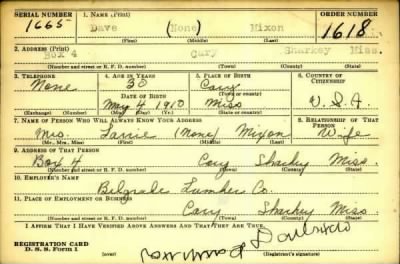 SERIAL NUMBER 1. NAME (Print) ORDER NUMBER
1665 Dave (None) Mixon 1618
(First) (Middle) (Last)
2. ADDRESS (Print)
Box 4 Cary Sharkey Miss.
(Number and street or R. F. D. number) (Town) (County) (State)
3. TELEPHONE 4. AGE IN YEARS 5. PLACE OF BIRTH 6. COUNTRY OF CITIZENSHIP
None 30 Cary
DATE OF BIRTH (Town or county)
May 4 1910 Miss U.S.A.
(Exchange) (Number) (Mo.) (Day) (Yr.) (State or country)
7. NAME OF PERSON WHO WILL ALWAYS KNOW YOUR ADDRESS 8. RELATIONSHIP OF THAT PERSON
Mrs. (None) Mixon Wife
(Mr., Mrs., Miss) (First) (Middle) (Last)
9. ADDRESS OF THAT PERSON
Box 4 Cary Sharkey Miss.
(Number and street or R. F. D. number) (Town) (County) (State)
10. EMPLOYER'S NAME
Belgrade Lumber Co.
11. PLACE OF EMPLOYMENT OR BUSINESS
Cary Sharkey Miss.
(Number and street or R. F. D. number) (Town) (County) (State)
I AFFIRM THAT I HAVE VERIFIED ABOVE ANSWERS AND THAT THEY ARE TRUE.
REGISTRATION CARD
D. S. S. Form 1 (Registrant's signature)